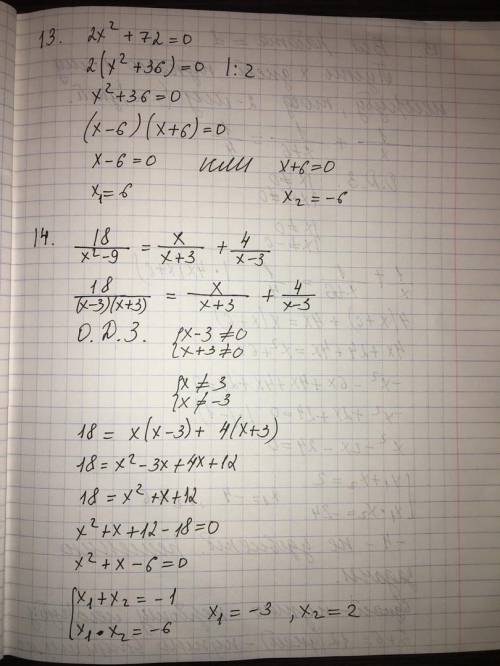 13. 2x² + 72 = 0
2(x² + 36) = 0 | : 2
x² + 36 = 0
(x-6)(x+6) = 0
x-6 = 0 или x+6 = 0
x₁ = 6 x₂ = -6
14. 18/(x²-9) = x/(x+3) + 4/(x-3)
18/((x-3)(x+3)) = x/(x+3) + 4/(x-3)
О.Д.З. {x-3 ≠ 0
{x+3 ≠ 0
{x ≠ 3
{x ≠ -3
18 = x(x-3) + 4(x+3)
18 = x² - 3x + 4x + 12
18 = x² + x + 12
x² + x + 12 - 18 = 0
x² + x - 6 = 0
{x₁ + x₂ = -1
{x₁ • x₂ = -6 x₁ = -3 , x₂ = 2